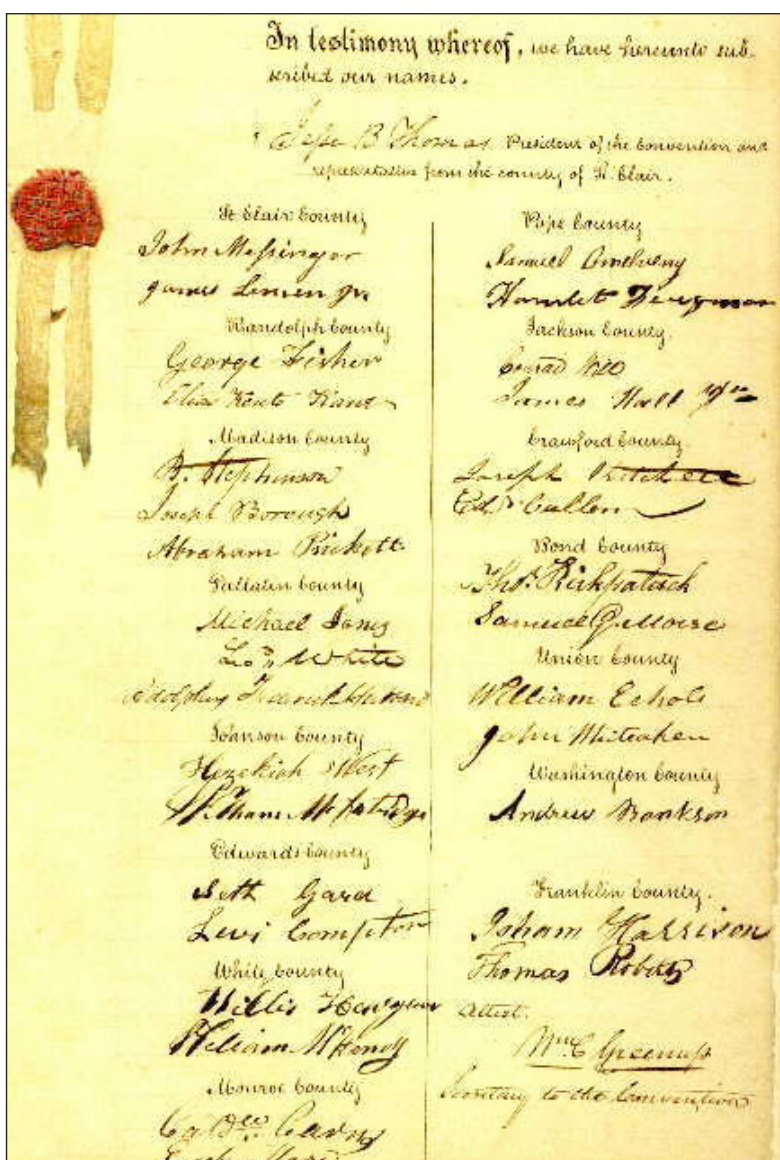 In testimony whereof, we have hereunto sub-
scribed our names.
Jesse B Thomas President of the Convention and
representative from the county of St. Clair.
St Clair County
John Messinger
James Lemen Jr.
Randolph County
George Fisher
Elias Kent Kane
Madison County
B. Stephenson
Joseph Borough
Abraham Prickett
Gallatin County
Michael Jones
Leod. White
Adolphus Frederick Hubbard
Johnson County
Hezekiah West
William McFatridge
Edwards County
Seth Gard
Levi Compton
White County
Willis Hargrave
William McHenry
Monroe County
Caldwell Carns
Enoch Moore
Pope County
Samuel Omelveny
Hamlet Ferguson
Jackson County.
Conrad Will
James Hall Jr
Crawford County.
Joseph Kitchell
Ed. N Cullom
Bond County
Thos. Kirkpatrick
Samuel G. Morse
Union County
William Echols
John Whiteaker
Washington County
Andrew Bankson
Franklin County.
Isham Harrison
Thomas Roberts
Attest.
Wm C Greenup
Secretary to the Convention